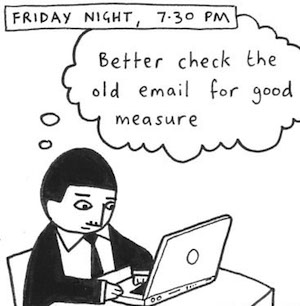 FRIDAY NIGHT, 7·30 PM
Better check the
old email for good
measure